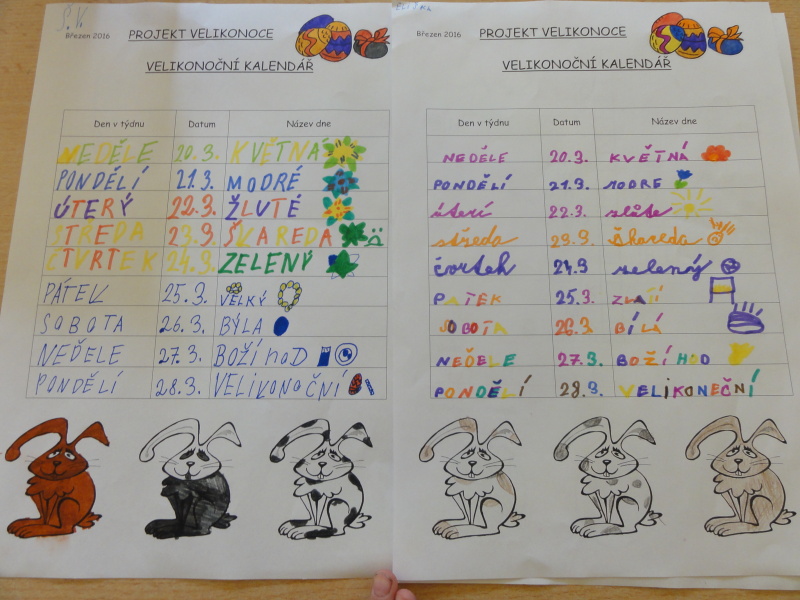 Š.K.
Březen 2016 PROJEKT VELIKONOCE
VELIKONOČNÍ KALENDÁŘ
Den v týdnu Datum Název dne
NEDĚLE 20.3. KVĚTNÁ
PONDĚLÍ 21.3. MODRÉ
ÚTERÝ 22.3. ŽLUTÉ
STŘEDA 23.3. ŠKAREDÁ
ČTVRTEK 24.3. ZELENÝ
PÁTEK 25.3. VELKÝ
SOBOTA 26.3. BÝLA
NEĎELE 27.3. BOŽÍ HOD
PONDĚLÍ 28.3. VELIKONOČNÍ
Březen 2016 PROJEKT VELIKONOCE
VELIKONOČNÍ KALENDÁŘ
Den v týdnu Datum Název dne
NEDĚLE 20.3. KVĚTNÁ
PONDĚLÍ 21.3. MODRE
úterí 22.3. žlůte
středa 23.3. Škareda
čvrtek 24.3 zelený
PATEK 25.3.
SOBOTA 26.3 BÍLÁ
NEĎELE 27.3. BOŽÍ HOD
PONDĚLÍ 28.3. VELIKONEČNÍ